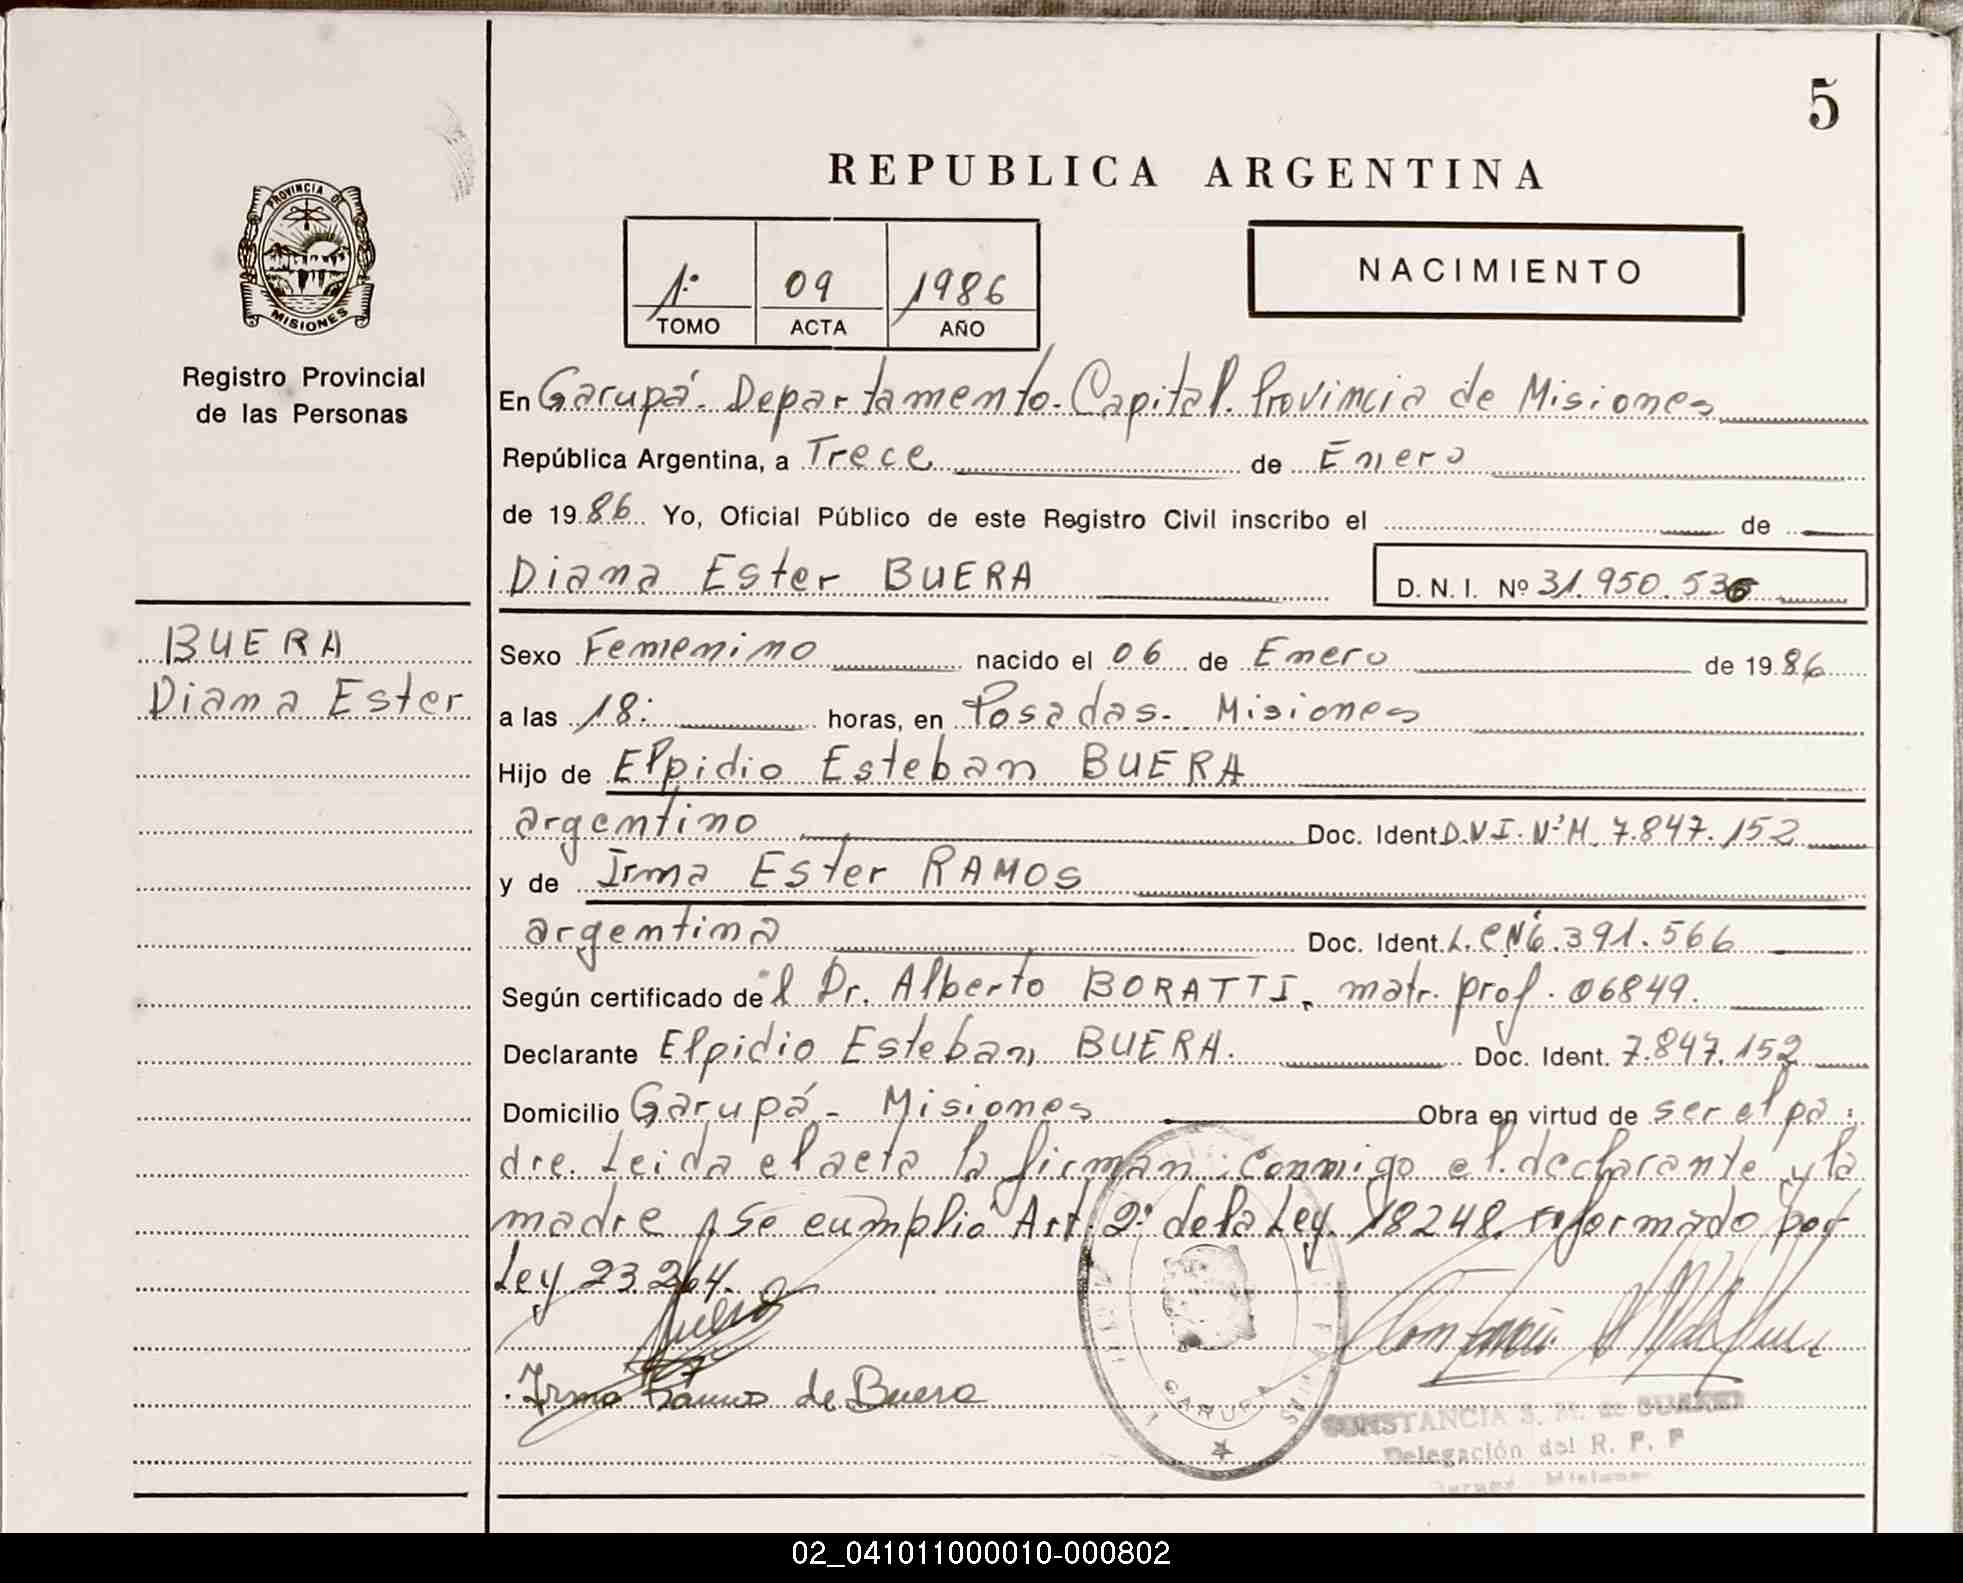 5
REPUBLICA ARGENTINA
PROVINCIA DE
MISIONES
Registro Provincial
de las Personas
1º 09 1986
TOMO ACTA AÑO
NACIMIENTO
En Garupá - Departamento - Capital. Provincia de Misiones
República Argentina, a Trece de Enero
de 1986 Yo, Oficial Público de este Registro Civil inscribo el de
Diana Ester BUERA
D. N. I. Nº 31.950.536
BUERA
Diana Ester
Sexo Femenino nacido el 06 de Enero de 1986
a las 18: horas, en Posadas - Misiones
Hijo de Elpidio Esteban BUERA
argentino Doc. Ident D.N.I. Nº M. 7.847.152
y de Irma Ester RAMOS
argentina Doc. Ident. L.C Nº 6.391.566
Según certificado de l Dr. Alberto BORATTI, matr. prof. 06849.
Declarante Elpidio Esteban BUERA. Doc. Ident. 7.847.152
Domicilio Garupá - Misiones Obra en virtud de ser el pa:
dre. Leida el acta la firman conmigo el declarante y la
madre, Se cumplió Art. 2º de la Ley 18248. reformado por
Ley 23.264.
Irma Ramos de Buera
GARUPA
CONSTANCIA S. M. de
Delegación del R. P. P
02_041011000010-000802